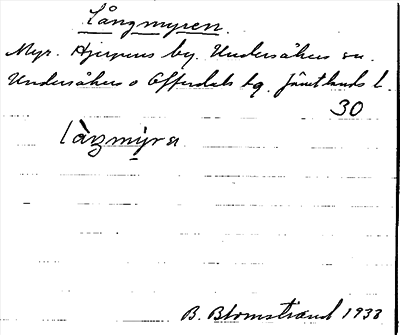 Långmyren.
Myr. Hjerpens by. Undersåkers sn.
Undersåkers o Offerdals tg. Jämtlands l.
30
làŋmỳra
B. Blomstrand 1933